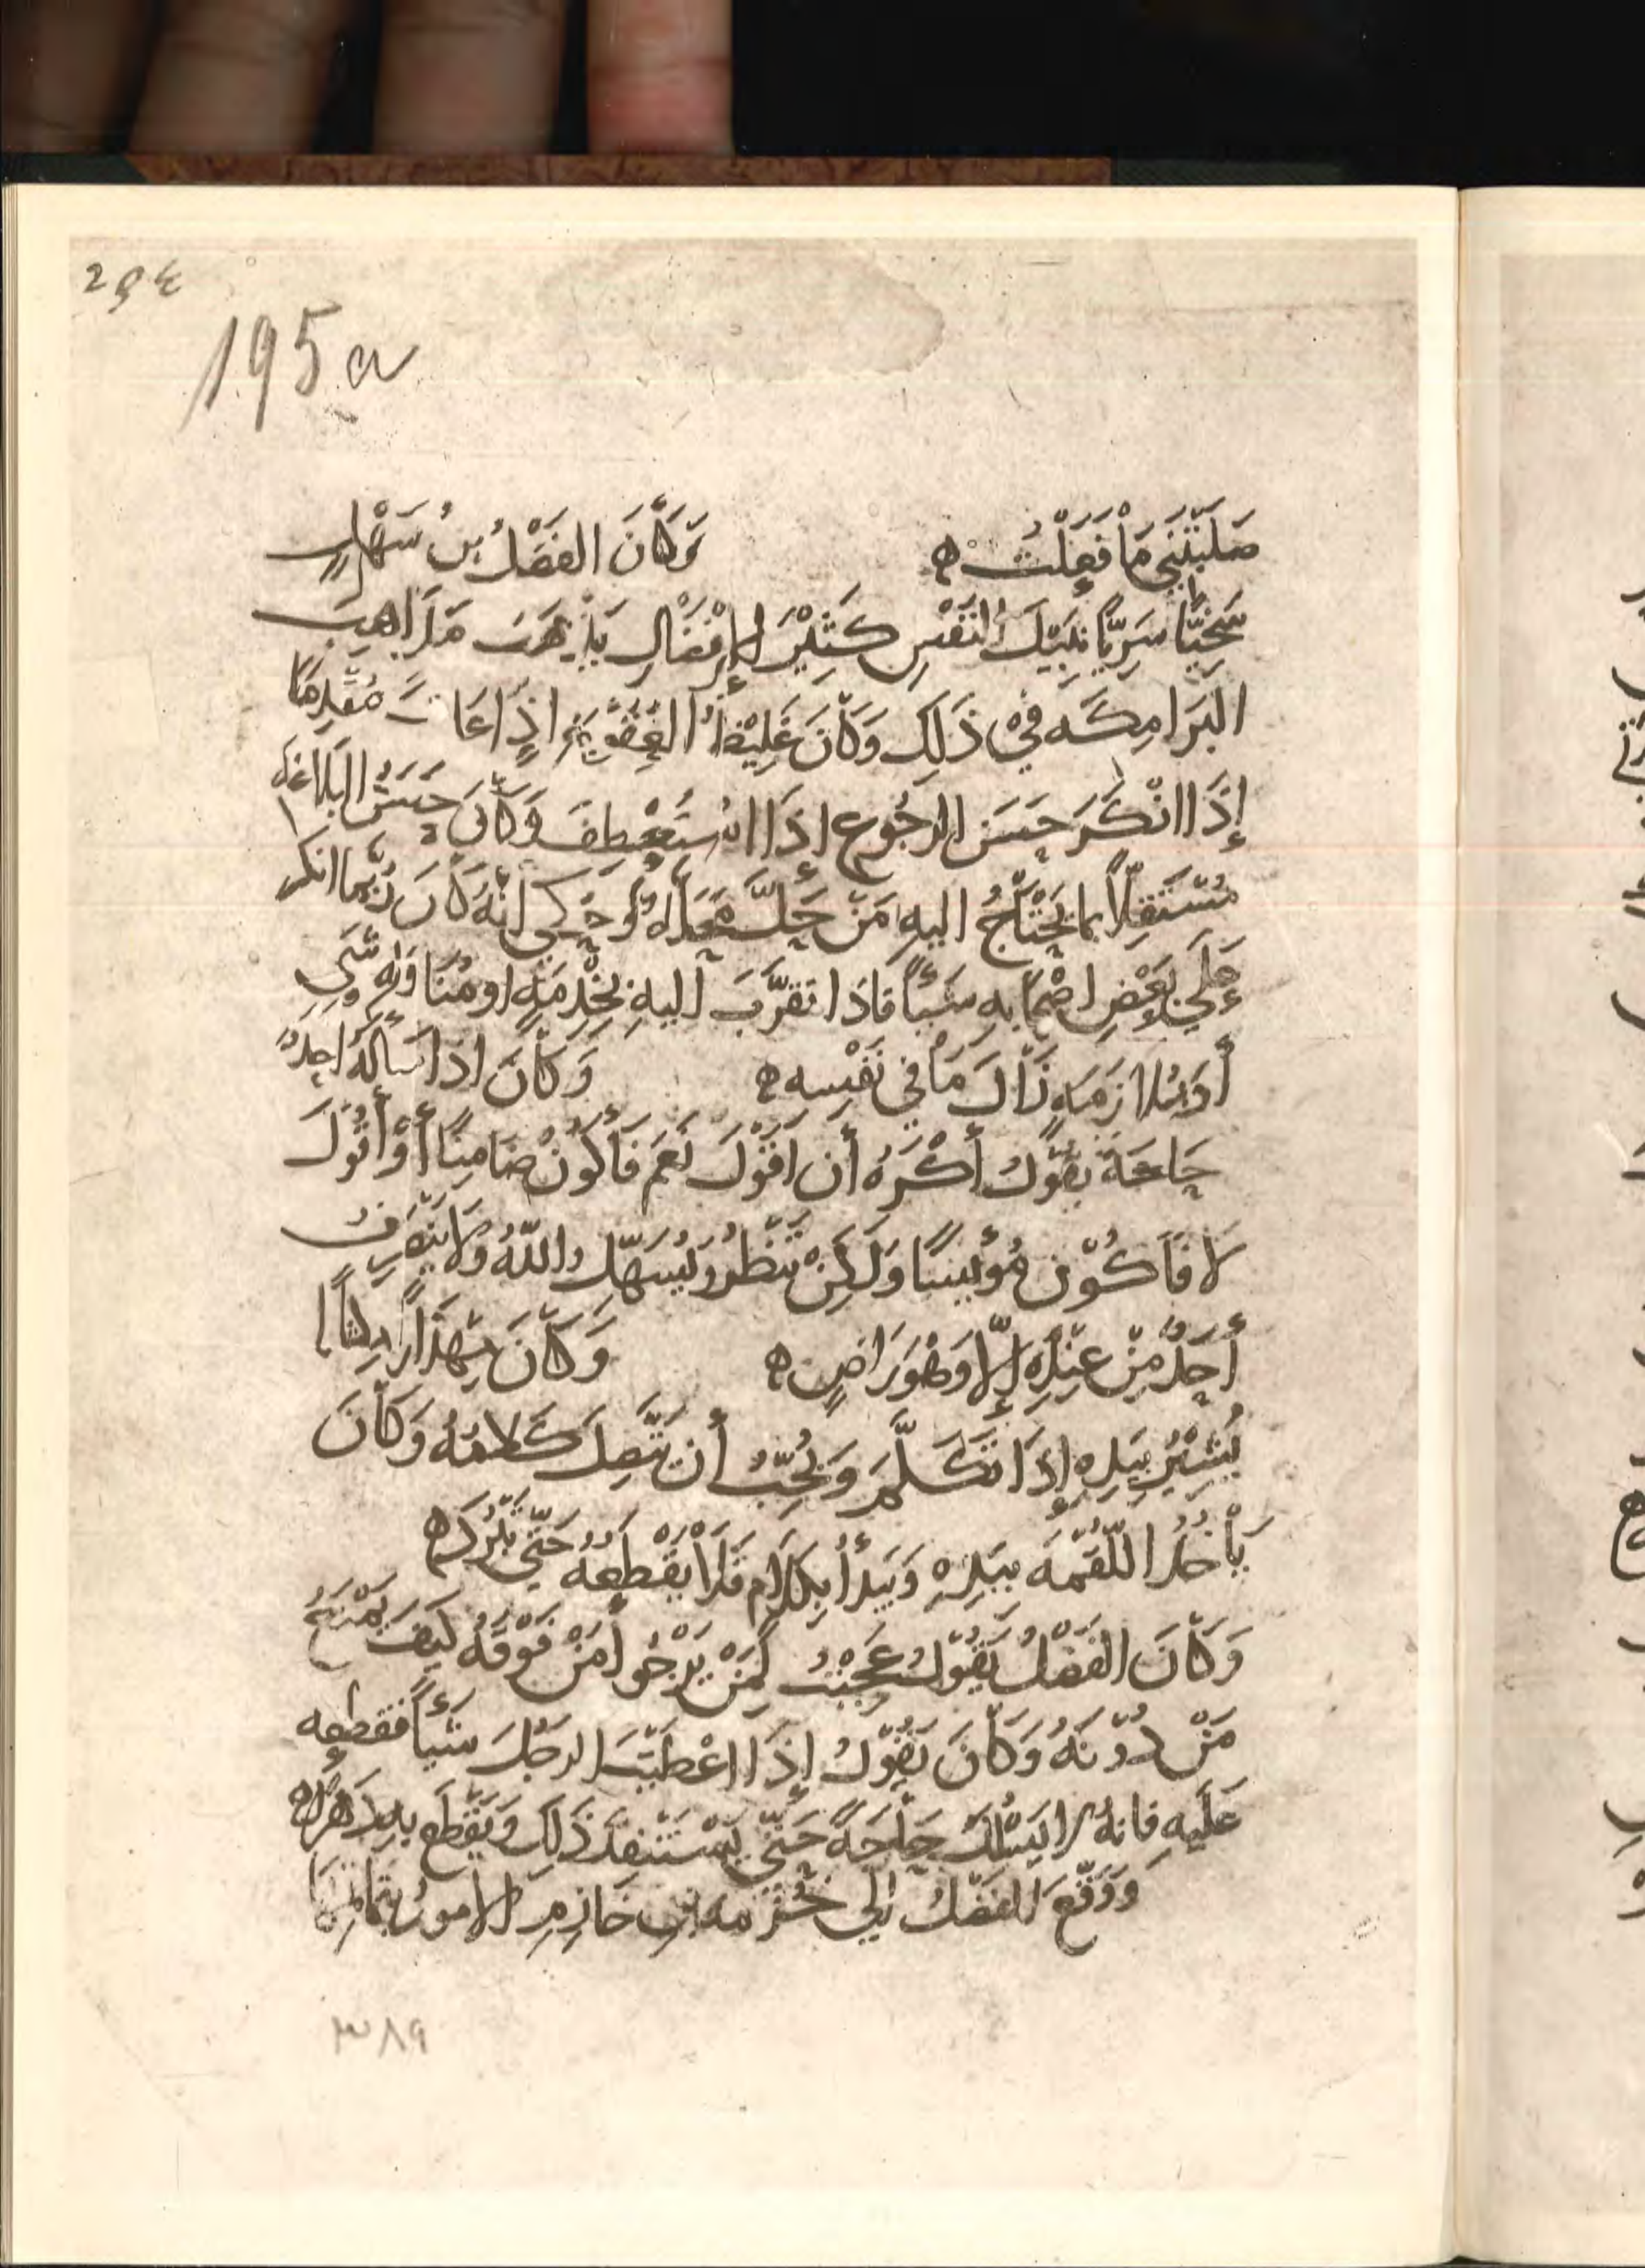 294
195a
صَلَبْتَنِي مَا فَعَلْتُ ه وَكَانَ الفَضْلُ بنُ سَهْلٍ
سَخِيًّا سَرِيًّا نَبِيْلَ النَفْسِ كَثِيْرَ الإِفْضَالِ يَذْهَبُ مَذَاهِبَ
البَرَامِكَه فِيْ ذَلِكَ وَكَانَ غَلِيْظَ العُقُوبَةِ اذَا عَاقَبَ مُقْدِمًا
إِذَا انْكَرَ حَسَنَ الرجُوعِ اذَا اسْتُعْطِفَ وَكَانَ حَسَنَ البَلاغَه
مُسْتَقِلًّا بما يَحْتَاجُ اليهِ مَنْ حَلَّ مَحَلَّهُ وَحُكِي أَنَّهُ كَانَ رُبَّمَا انكر
عَلَى بَعْضِ اصْحَابِهِ شَيْأً فاذَا تقرَّبَ اليهِ بِخِدْمَةٍ او مُنَاوَلَه شَيٍ
أَوْ مُلازَمَهٍ زَالَ مَا في نَفْسِه ه وَكَانَ اذَا سَأَلَهُ احَدٌ
حَاجَةً يَقُوْلُ أَكْرَهُ أَن اقُوْلَ نَعَمْ فَأَكُوْنْ ضَامِنًا أَوْ أَقُوْلَ
لاَ فَأَكُوْنَ مُؤْيِسًا وَلَكِنْ نَنْظُرُ وَيُسَهِّلُ اللّهُ وَلاَ يَنْصَرِفُ
أَحَدٌ مِنْ عِنْدِهِ إِلَّا وَهْوَ رَاضٍ ه وَكَانَ مِهْذَارًا
يُشِيْرُ بِيَدِهِ إِذَا تَكَلَّمَ وَيُحِبُّ أَن يَتَّصِلَ كَلامُهُ وَكَانَ
يَأْخُذُ اللّقْمَه بِيَدِهِ وَيَبْدَأُ بِكَلَامٍ فَلَا يَقْطَعُهُ حَتَّى تَبْرُدَ ه
وَكَانَ الفَضْلُ يَقُوْلُ عَجِبْتُ لِمَنْ يَرْجُوا مَنْ فَوْقَهُ كَيْفَ يَمْنَعُ
مَنْ دُوْنَهُ وَكَانَ يَقُوْلُ إِذَا اعْطَيْتَ الرجُلَ شَيْأً فقطعه
عَلَيهِ فانهُ لا يَسْلُكَ حَاجَةً حَتَّى يَسْتَنْفِدَ ذَلِكَ وَيَقْطَعَ بِهِ دَهْرَه ه
وَوَقَّعَ الفَضْلُ الى خُزَيْمَه بْنِ خَازِمٍ الامورُ بِتَمَامِهَا
٣٨٩